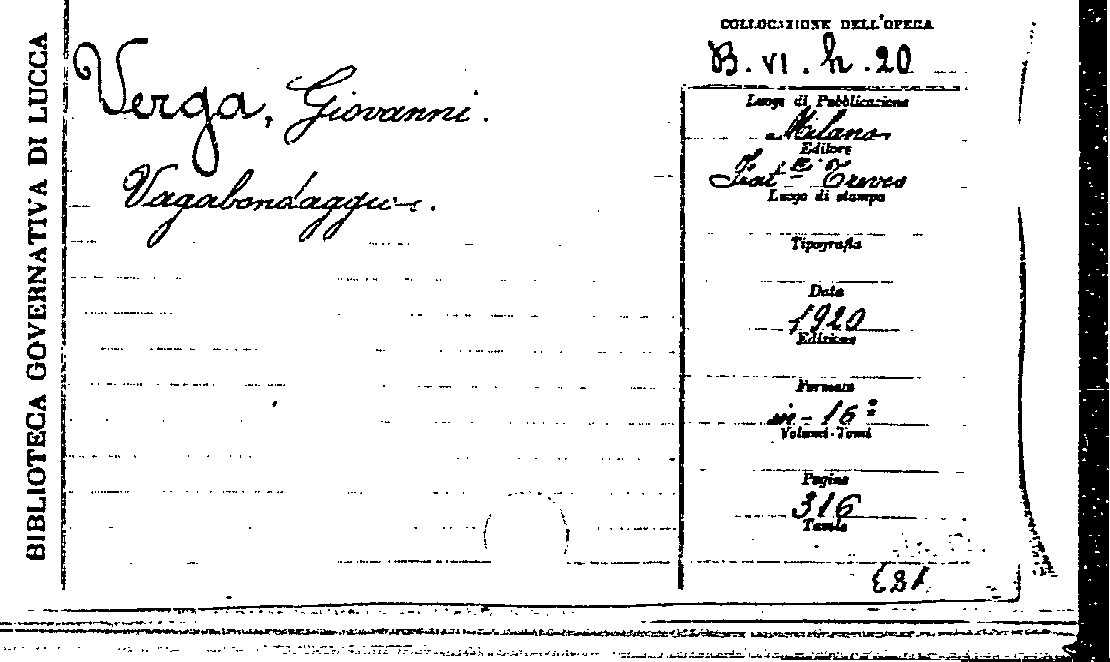 BIBLIOTECA GOVERNATIVA DI LUCCA
Verga, Giovanni.
Vagabondaggio.
COLLOCAZIONE DELL'OPERA
B. VI. h. 20
Luogo di Pubblicazione
Milano
Editore
Frat.lli Treves
Luogo di stampa
Tipografia
Data
1920
Edizione
Formato
in-16º
Volumi-Tomi
Pagine
316
Tavole